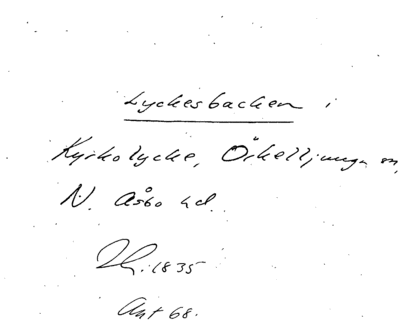 Lyckesbacken i
Kyrkolycke, Örkelljunga sn,
N. Åsbo hd.
1835
Ant 68.